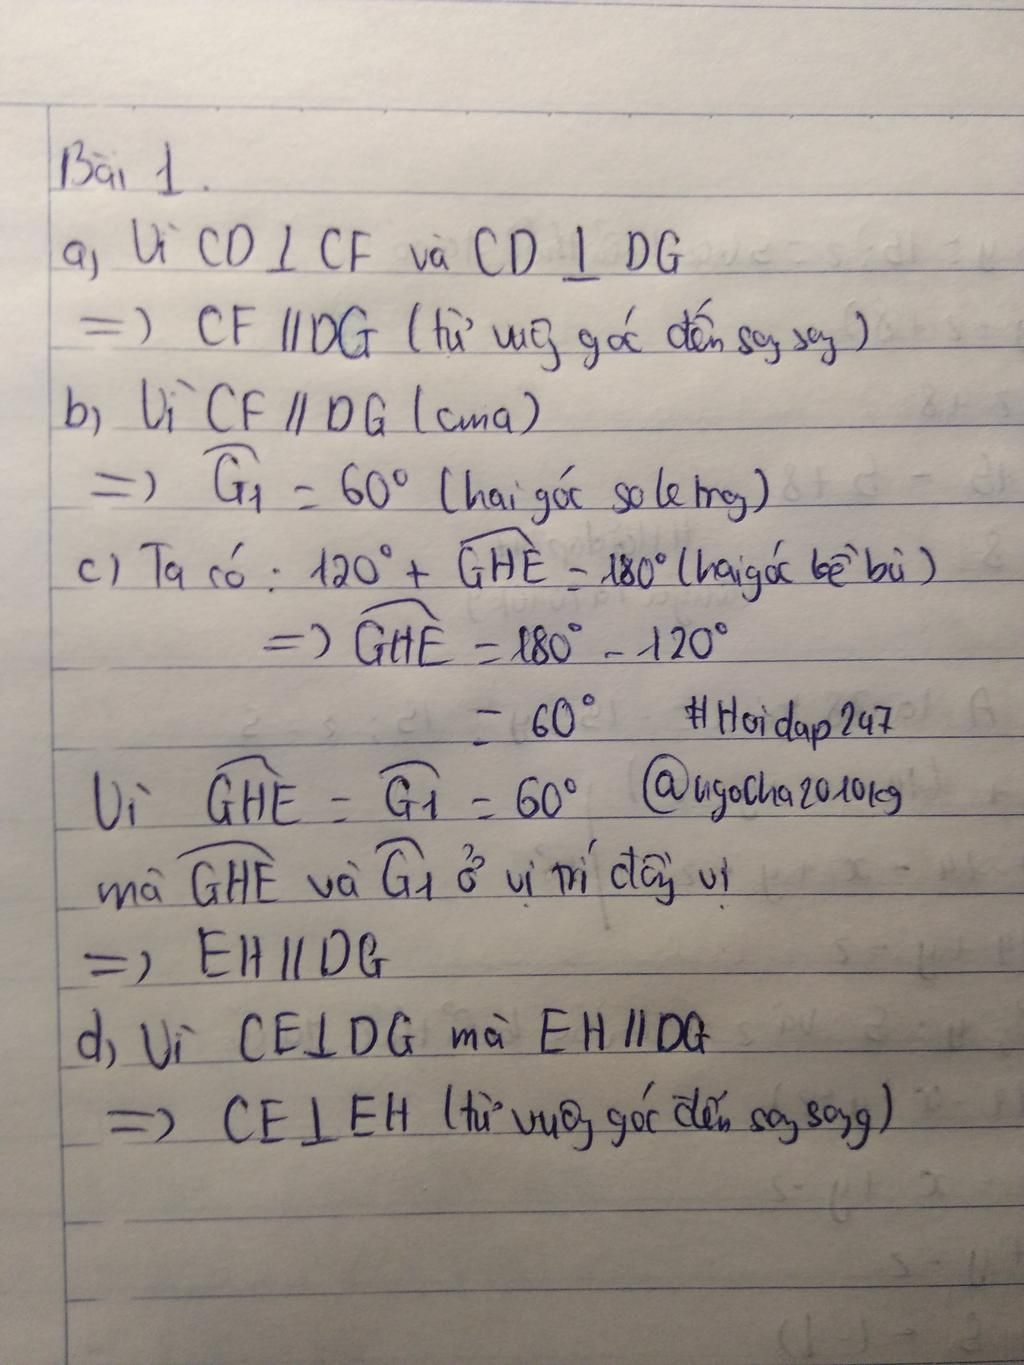 Bài 1.
a, Vì CD ⊥ CF và CD ⊥ DG
=> CF // DG (từ vuông góc đến song song)
b, Vì CF // DG (cma)
=> \widehat{G1} = 60° (hai góc so le trong)
c) Ta có : 120° + \widehat{GHE} = 180° (hai góc kề bù)
=> \widehat{GHE} = 180° - 120°
= 60° #Hoidap247
Vì \widehat{GHE} = \widehat{G1} = 60° @ngocha2010kg
mà \widehat{GHE} và \widehat{G1} ở vị trí đồng vị
=> EH // DG
d, Vì CE ⊥ DG mà EH // DG
=> CE ⊥ EH (từ vuông góc đến song song)